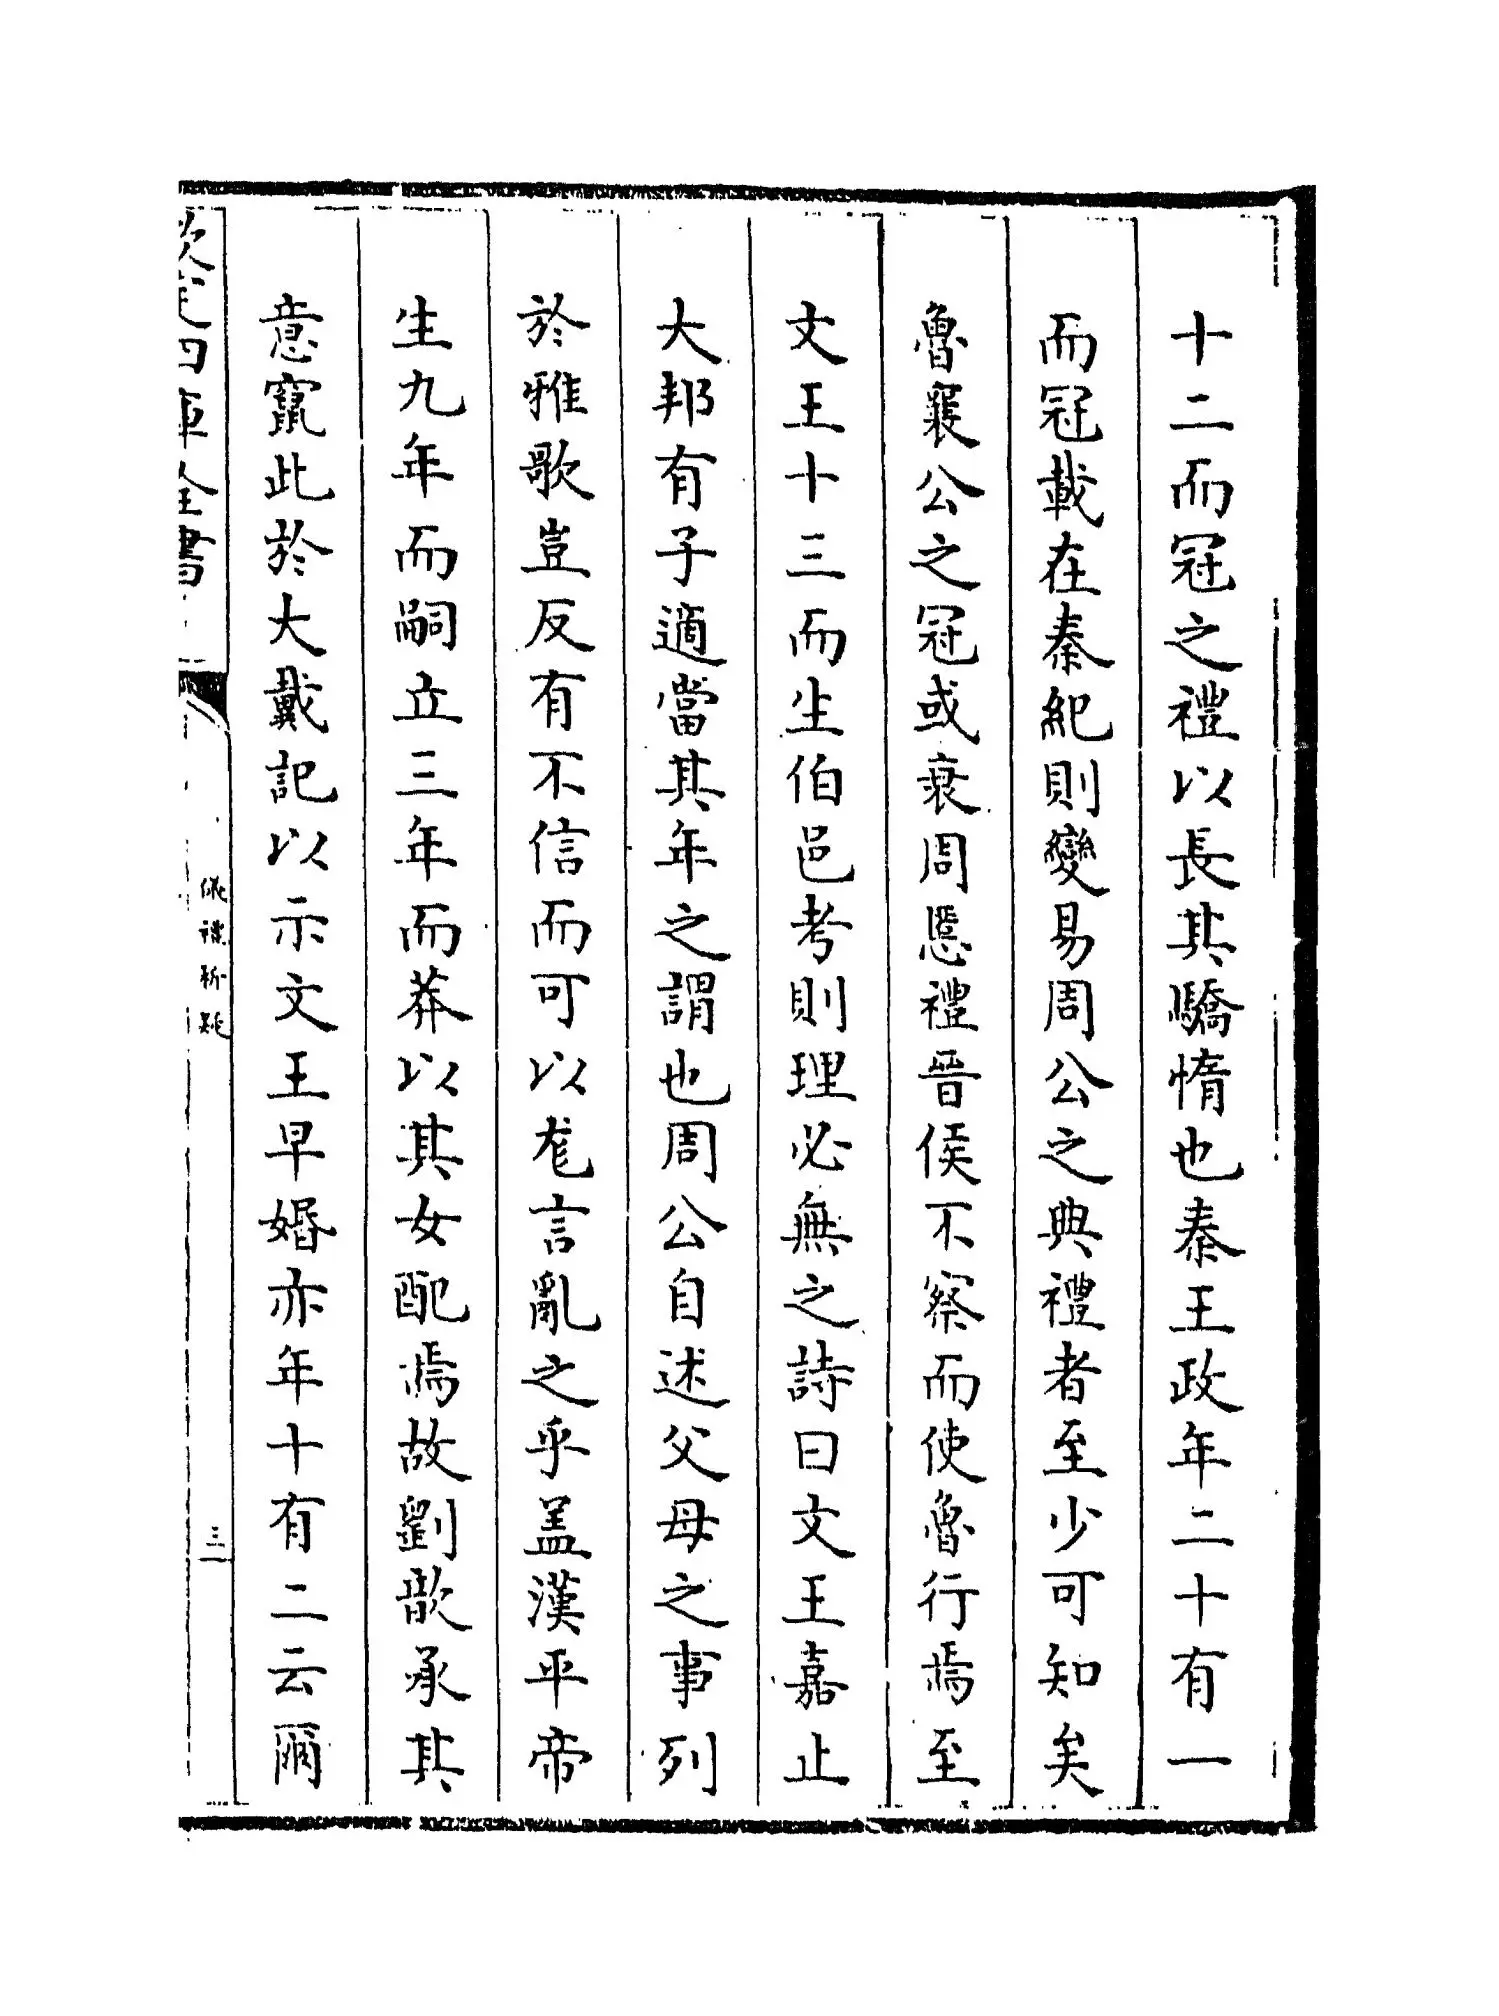 十二而冠之禮以長其驕惰也秦王政年二十有一
而冠載在秦紀則變易周公之典禮者至少可知矣
魯襄公之冠或衰周慝禮晉侯不察而使魯行焉至
文王十三而生伯邑考則理必無之詩曰文王嘉止
大邦有子適當其年之謂也周公自述父母之事列
於雅歌豈反有不信而可以尨言亂之乎盖漢平帝
生九年而嗣立三年而莽以其女配焉故劉歆承其
意竄此於大戴記以示文王早婚亦年十有二云爾
欽定四庫全書
儀禮析疑
三